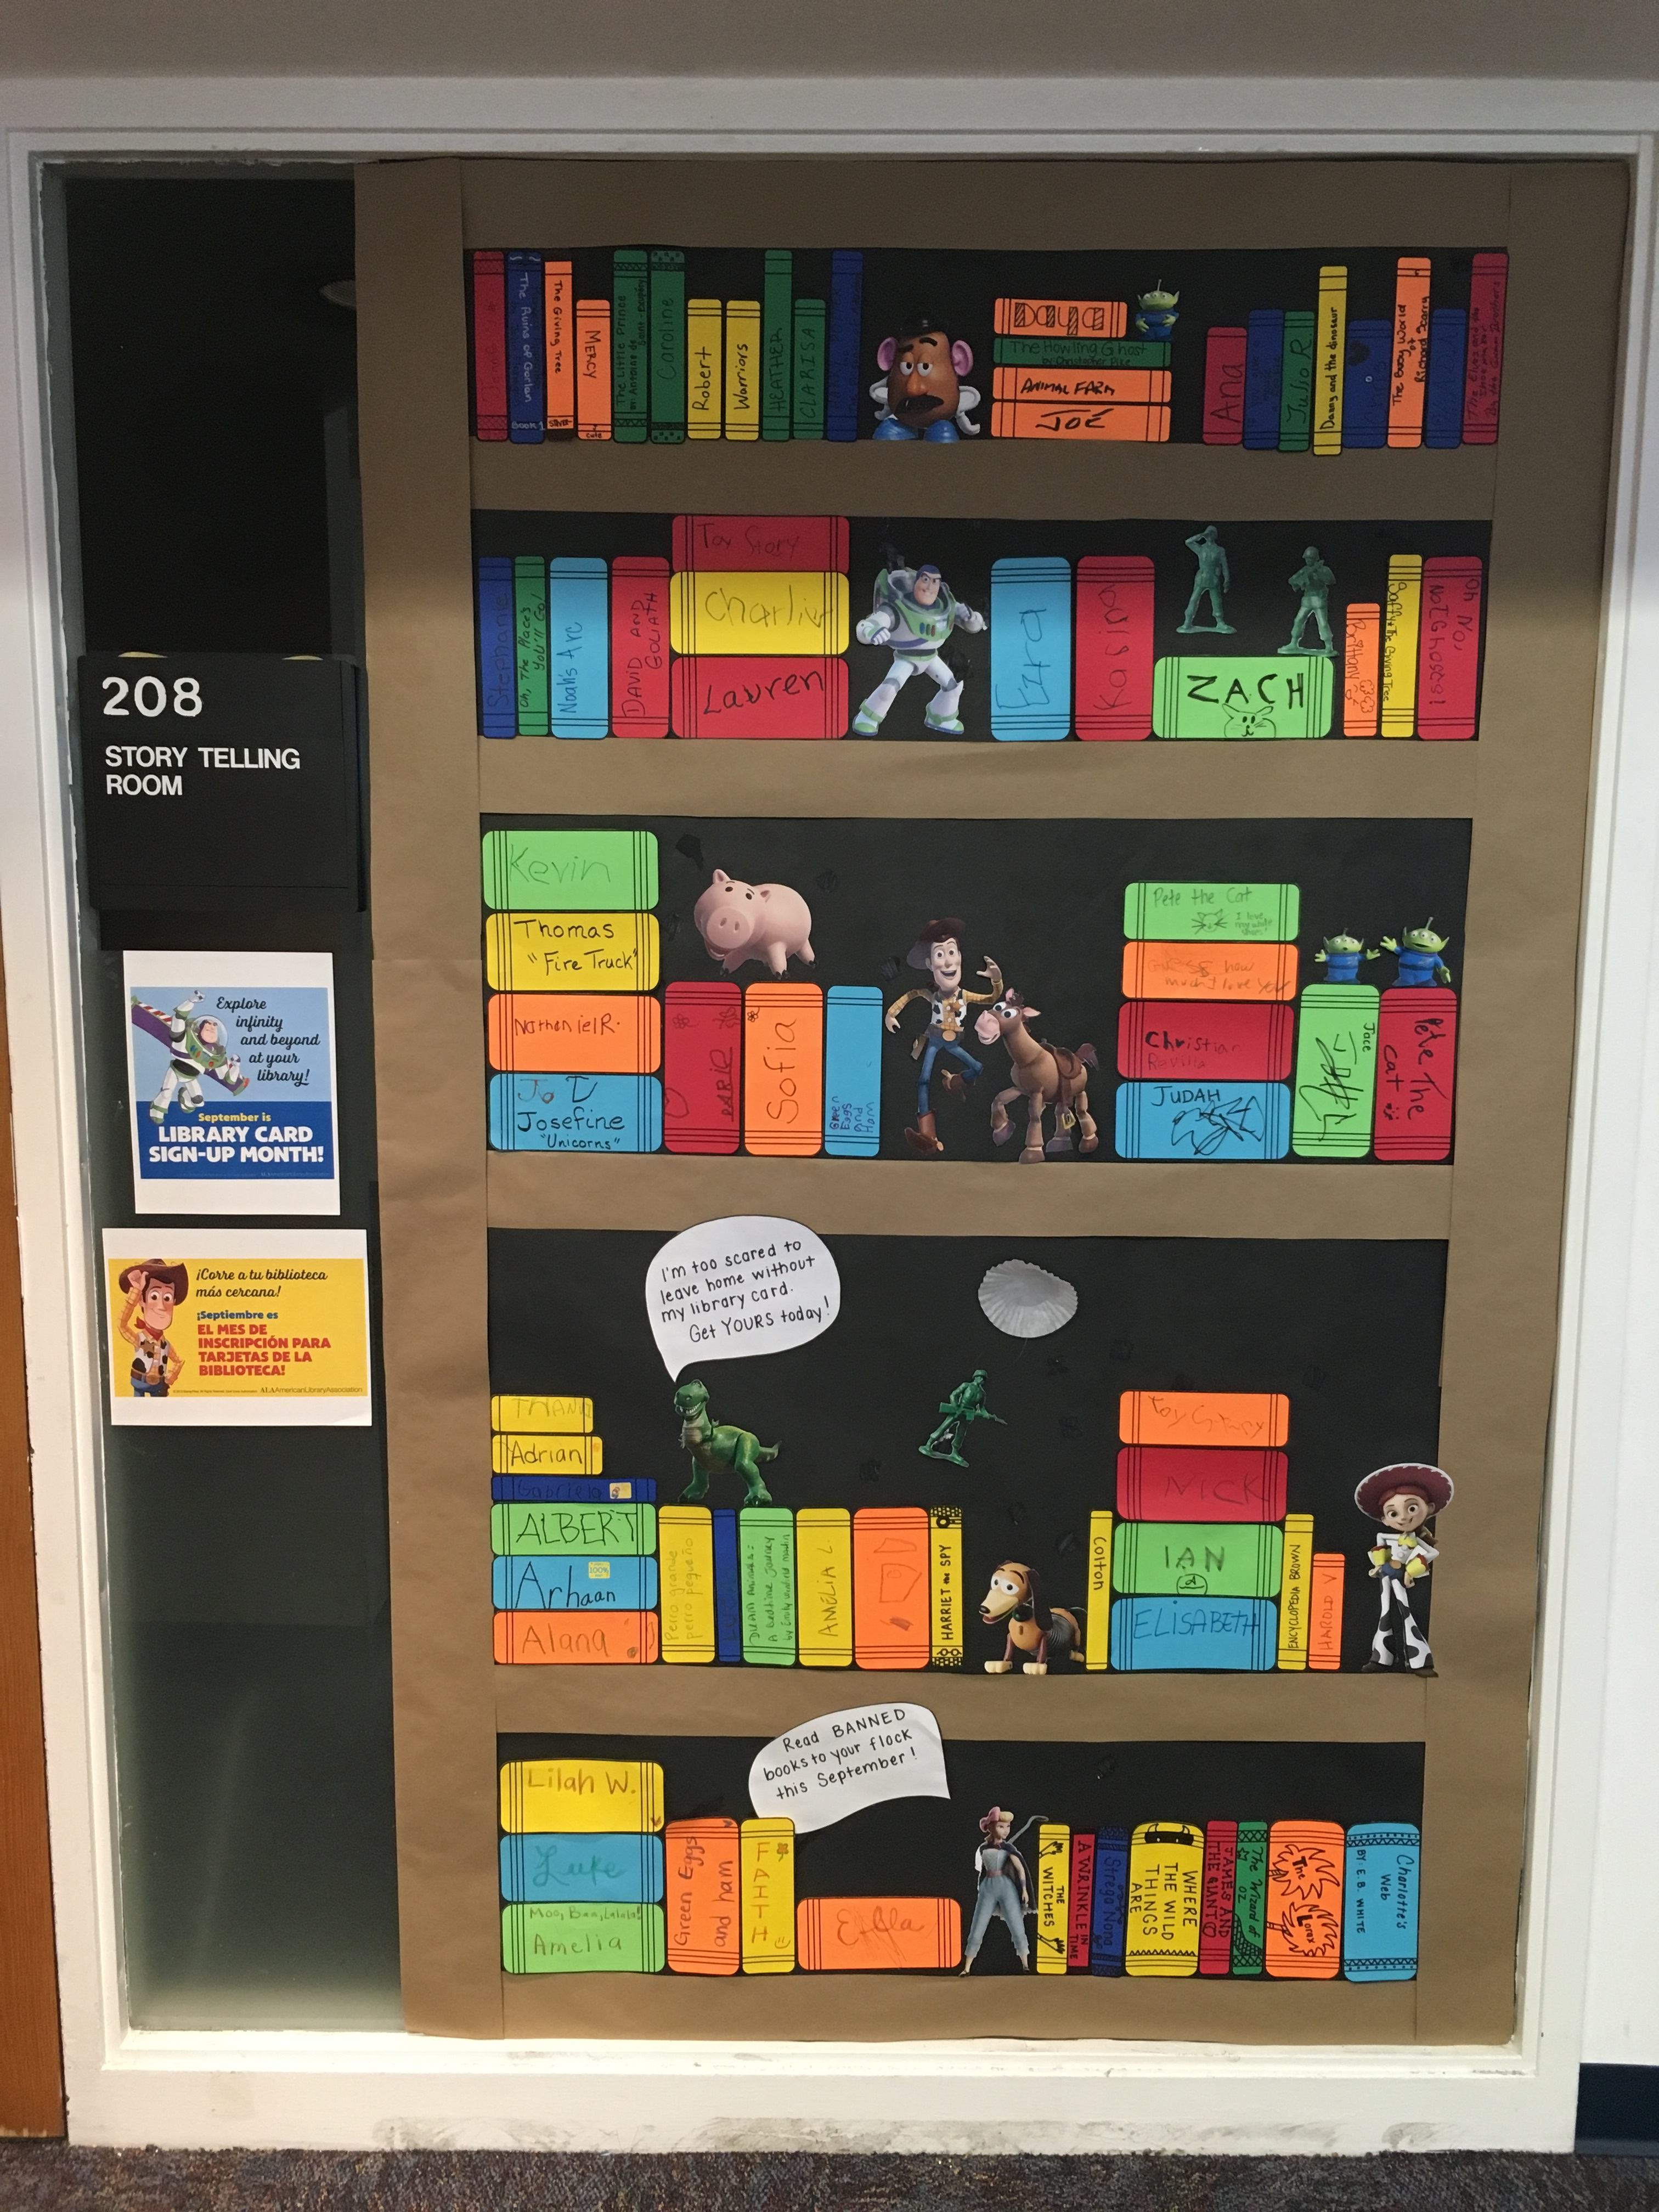 208
STORY TELLING
ROOM
Explore
infinity
and beyond
at your
library!
September is
LIBRARY CARD
SIGN-UP MONTH!
¡Corre a tu biblioteca
más cercana!
¡Septiembre es
EL MES DE
INSCRIPCIÓN PARA
TARJETAS DE LA
BIBLIOTECA!
ALAAmericanLibraryAssociation
The Ruins of Gorlan
BOOK 1
The Giving Tree
MERCY
The Little Prince
Caroline
Robert
Warriors
HEATHER
CLARISA
The Howling Ghost
by Christopher Pike
ANIMAL FARM
JOÉ
Ana
Julio R.
Danny and the dinosaur
The Busy World
of
Richard Scarry
The Elves and the
Stephanie
Oh, The Places
You'll Go!
Noah's Arc
DAVID AND
GOLIATH
Toy Story
Charlie
Lauren
Ezra
ZACH
Brittany
The Giving Tree
Oh No,
Not Ghosts!
Kevin
Thomas
"Fire Truck"
Nathaniel R.
Josefine
"Unicorns"
Sofia
Green
Eggs
and
Ham
Pete the Cat
I love
my white
shoes!
Guess how
much I love you
Christian
JUDAH
Jace
Pete The
cat
I'm too scared to
leave home without
my library card.
Get YOURS today!
Adrian
Gabriela
ALBERT
Arhaan
100%
Alana
Perro grande
perro pequeño
Dream Animals:
A Bedtime Journey
AMELIA L.
HARRIET the SPY
Colton
Toy Story
NICK
IAN
ELISABETH
ENCYCLOPEDIA BROWN
HAROLD V
Read BANNED
books to your flock
this September!
Lilah W.
Luke
Moo, Baa, Lalala!
Amelia
Green Eggs
and ham
FAITH
THE
WITCHES
A WRINKLE IN
TIME
Strega Nona
WHERE
THE WILD
THINGS
ARE
JAMES AND
THE GIANT
The Wizard of
OZ
The
Lorax
Charlotte's
Web
BY: E. B. WHITE